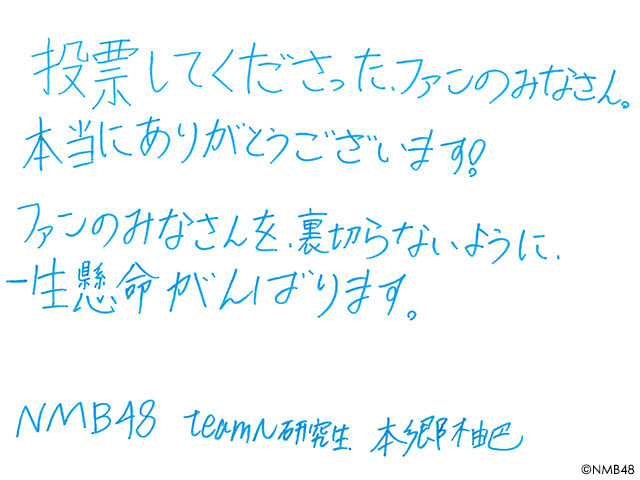 投票してくださった、ファンのみなさん。
本当にありがとうございます!
ファンのみなさんを、裏切らないように、
一生懸命がんばります。
NMB48 teamN研究生 本郷柚巴
©NMB48